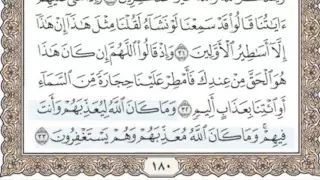 ءَايَٰتُنَا قَالُوا۟ قَدْ سَمِعْنَا لَوْ نَشَآءُ لَقُلْنَا مِثْلَ هَٰذَآ إِنْ هَٰذَآ
إِلَّآ أَسَٰطِيرُ ٱلْأَوَّلِينَ ٣١ وَإِذْ قَالُوا۟ ٱللَّهُمَّ إِن كَانَ هَٰذَا
هُوَ ٱلْحَقَّ مِنْ عِندِكَ فَأَمْطِرْ عَلَيْنَا حِجَارَةً مِّنَ ٱلسَّمَآءِ
أَوِ ٱئْتِنَا بِعَذَابٍ أَلِيمٍ ٣٢ وَمَا كَانَ ٱللَّهُ لِيُعَذِّبَهُمْ وَأَنتَ
فِيهِمْ ۚ وَمَا كَانَ ٱللَّهُ مُعَذِّبَهُمْ وَهُمْ يَسْتَغْفِرُونَ ٣٣
١٨٠